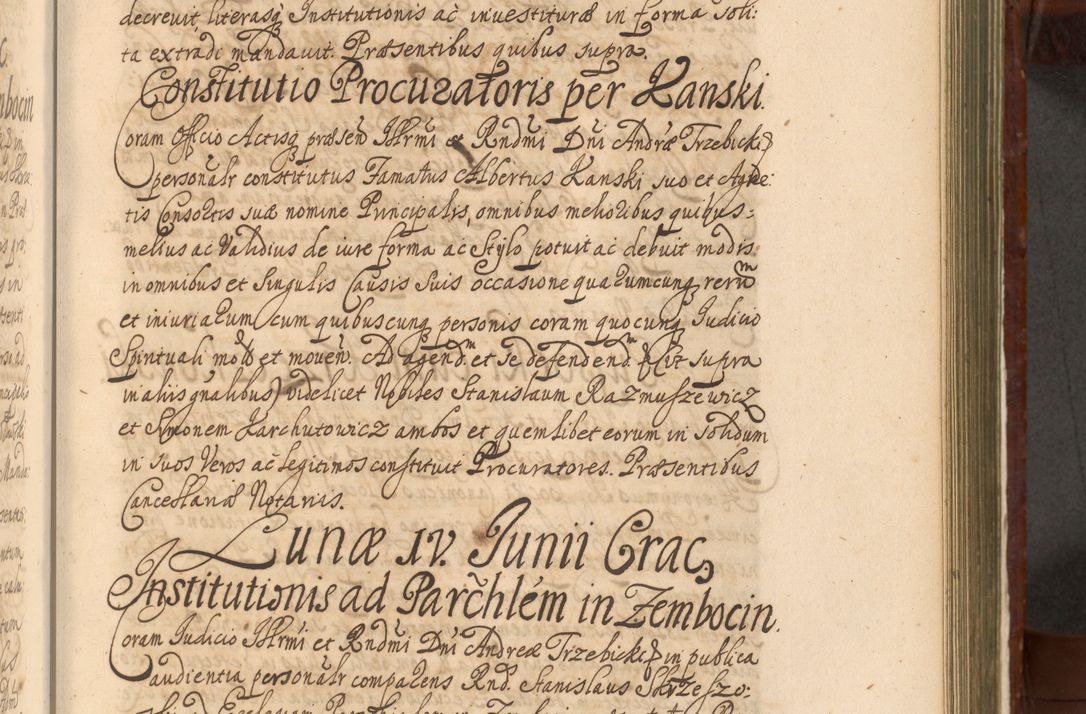 decrevit, literasq Institutionis ac investituræ in forma soli:
ta extradi mandavit. Præsentibus quibus supra.
Constitutio Procuratoris per Kanski.
Coram Officio Actisq præsen Illrmi et Rndmi Dni Andræ Trzebicki
personalr constitutus Famatus Albertus Kanski suo et Agne:
tis Consortis suæ nomine Principalis, omnibus melioribus quibus:
melius ac Validius de iure forma ac Stylo potuit ac debuit modis
in omnibus et Singulis Causis Suis occasione quarumcunq rerum
et iniuriarum cum quibuscunq personis coram quocunq Iudicio
Spirituali mot et moven. Ad agendm. et se defendendm (Cit supra
in aliis gnalibus) videlicet Nobiles Stanislaum Razmuszewicz
et Simonem Karchutowicz ambos et quemlibet eorum in solidum
in suos Veros ac legitimos constituit Procuratores. Præsentibus
Cancellariæ Notariis.
Lunæ IV. Junii Crac,
Institutionis ad Parchlem in Zembocin.
Coram Iudicio Illrmi et Rndmi Dni Andreæ Trzebicki in publica
audientia personalr comparens Rnd. Stanislaus Skrzeszo: